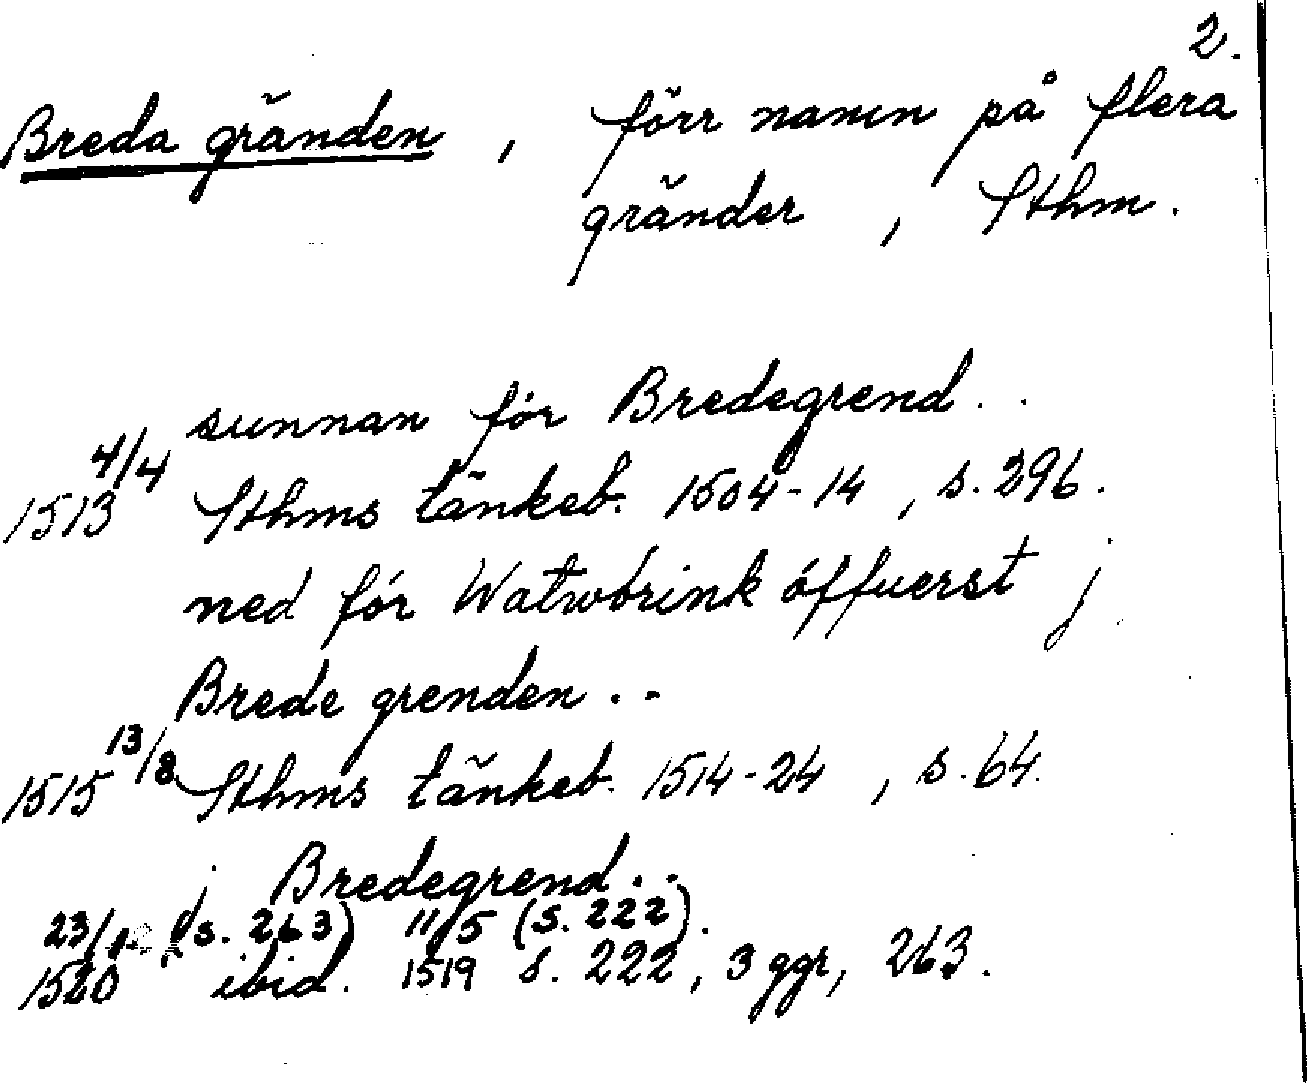 2.
Breda gränden, förr namn på flera
gränder, Sthm.
sunnan för Bredegrend..
4/4
1513 Sthms tänkeb. 1504-14, s. 296.
ned för Watwbrink öffuerst j
Brede grenden..
13/8
1515 Sthms tänkeb. 1514-24, s. 64.
j Bredegrend..
(s. 263) 11/5 (s. 222).
1520 ibid. 1519 s. 222, 3 ggr, 263.